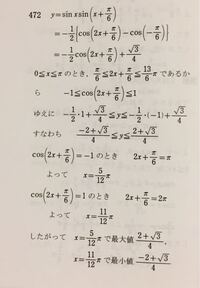 472 y=sin x sin(x+π/6)
=-1/2{cos(2x+π/6)-cos(-π/6)}
=-1/2cos(2x+π/6)+√3/4
0≦x≦π のとき，π/6≦2x+π/6≦13/6πであるか
ら -1≦cos(2x+π/6)≦1
ゆえに -1/2·1+√3/4≦y≦-1/2·(-1)+√3/4
すなわち -2+√3/4≦y≦2+√3/4
cos(2x+π/6)=-1のとき 2x+π/6=π
よって x=5/12π
cos(2x+π/6)=1のとき 2x+π/6=2π
よって x=11/12π
したがって x=5/12πで最大値 2+√3/4，
x=11/12πで最小値 -2+√3/4